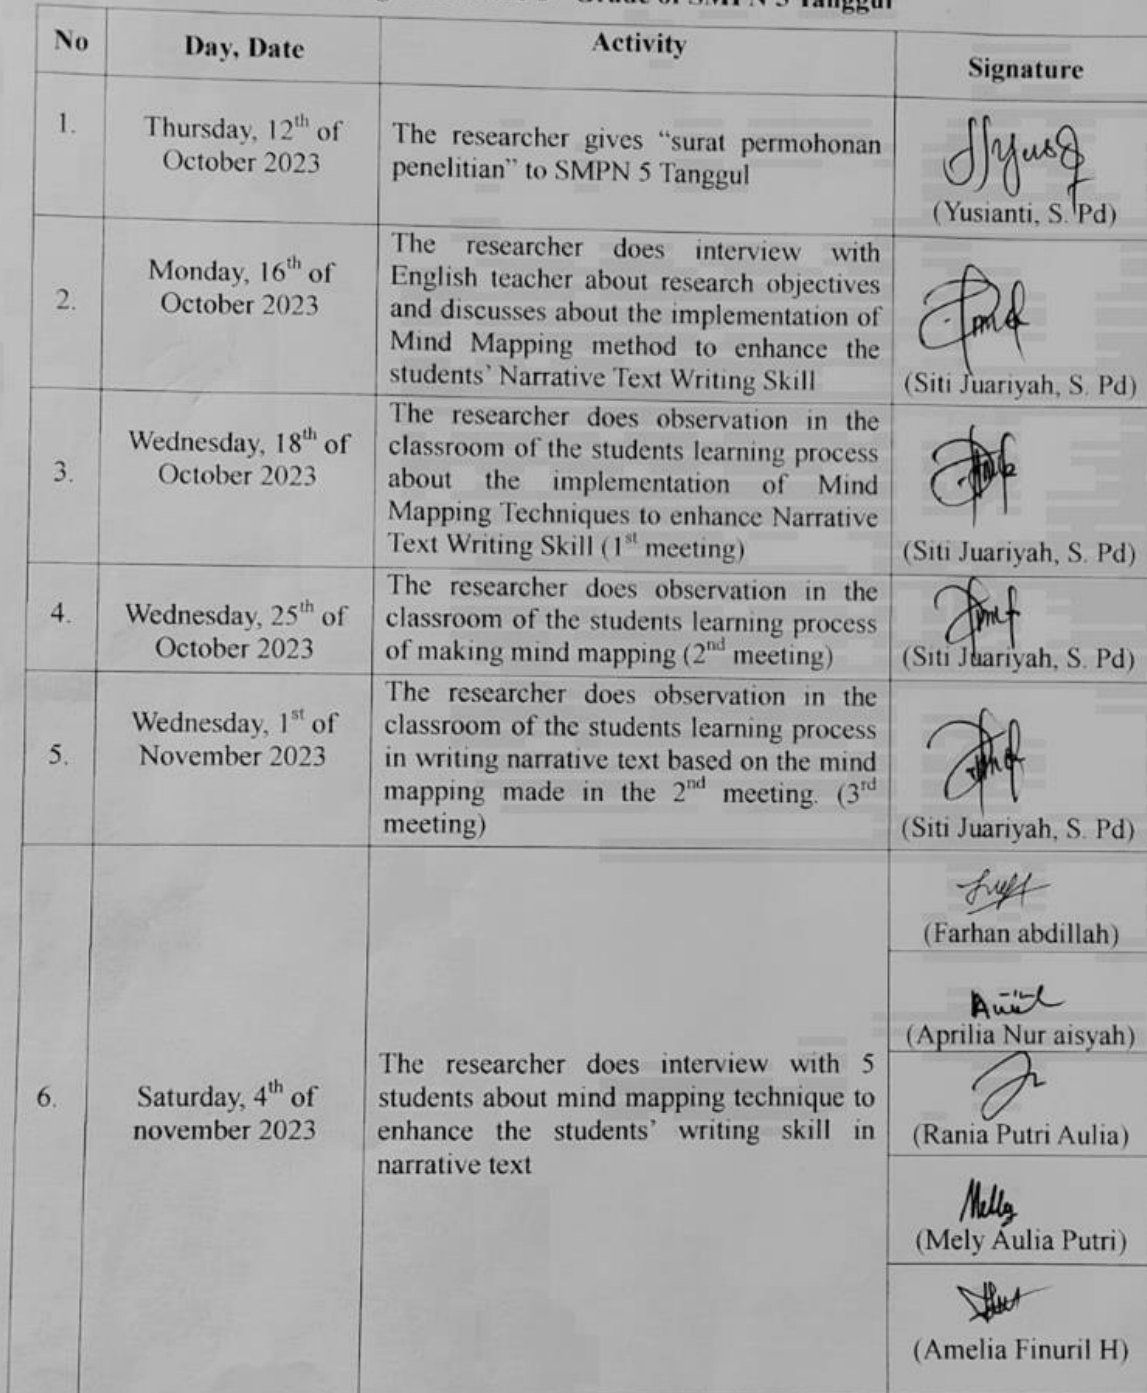 Grade of SMPN 5 Tanggul
No
Day, Date
Activity
Signature
1.
Thursday, 12th of
October 2023
The researcher gives “surat permohonan
penelitian” to SMPN 5 Tanggul
(Yusianti, S. Pd)
2.
Monday, 16th of
October 2023
The researcher does interview with
English teacher about research objectives
and discusses about the implementation of
Mind Mapping method to enhance the
students’ Narrative Text Writing Skill
(Siti Juariyah, S. Pd)
3.
Wednesday, 18th of
October 2023
The researcher does observation in the
classroom of the students learning process
about the implementation of Mind
Mapping Techniques to enhance Narrative
Text Writing Skill (1st meeting)
(Siti Juariyah, S. Pd)
4.
Wednesday, 25th of
October 2023
The researcher does observation in the
classroom of the students learning process
of making mind mapping (2nd meeting)
(Siti Juariyah, S. Pd)
5.
Wednesday, 1st of
November 2023
The researcher does observation in the
classroom of the students learning process
in writing narrative text based on the mind
mapping made in the 2nd meeting. (3rd
meeting)
(Siti Juariyah, S. Pd)
6.
Saturday, 4th of
november 2023
The researcher does interview with 5
students about mind mapping technique to
enhance the students’ writing skill in
narrative text
(Farhan abdillah)
(Aprilia Nur aisyah)
(Rania Putri Aulia)
(Mely Aulia Putri)
(Amelia Finuril H)